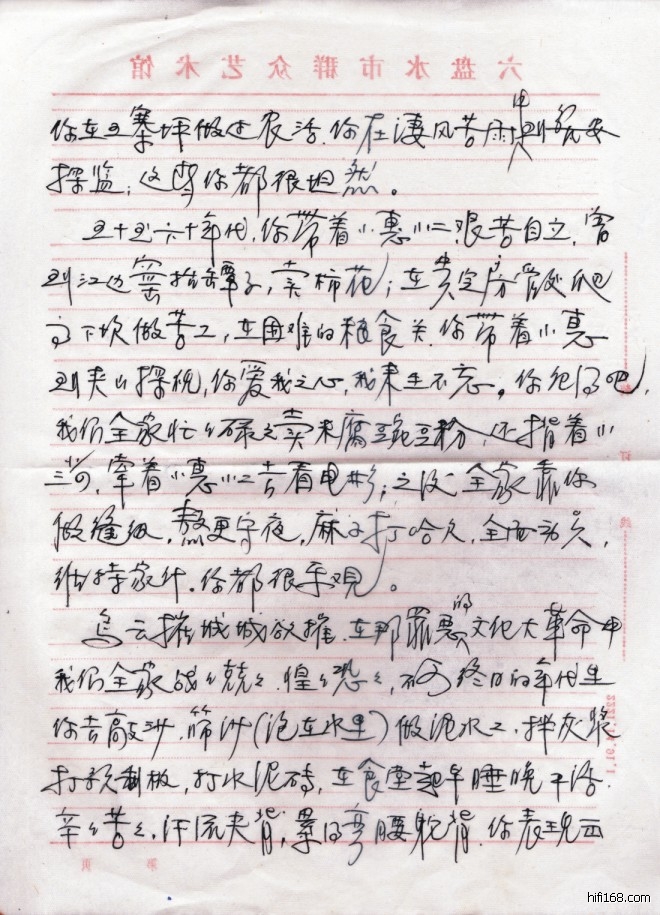 六盘水市群众艺术馆
你在寨坪做过农活，你在凄风苦雨中到
探监，这些你都很坦然。
五十至六十年代，你带着小惠小二艰苦自立，曾
到江边捡子，卖棉花；在贵定房管处爬
高下坎做苦工，在困难的粮食关，你带着小惠
到夹山探视，你爱我之心，我来生不忘。你记得吧，
我们全家忙忙碌碌卖米腐豌豆粉，还揹着小
三，牵着小惠小二去看电影；之后全家靠你
做缝纫，熬更守夜，麻子打哈欠，全面动员，
维持家计。你都很乐观。
乌云摧城城欲摧，在那罪恶的文化大革命中
我们全家战战兢兢，惶惶恐恐，不可终日的年代里
你去敲沙，筛沙（泡在水里）做泥水工，拌灰浆
打预制板，打水泥砖，在食堂起早睡晚干活，
辛辛苦苦，汗流夹背，累得弯腰驼背，你表现
hifi168.com